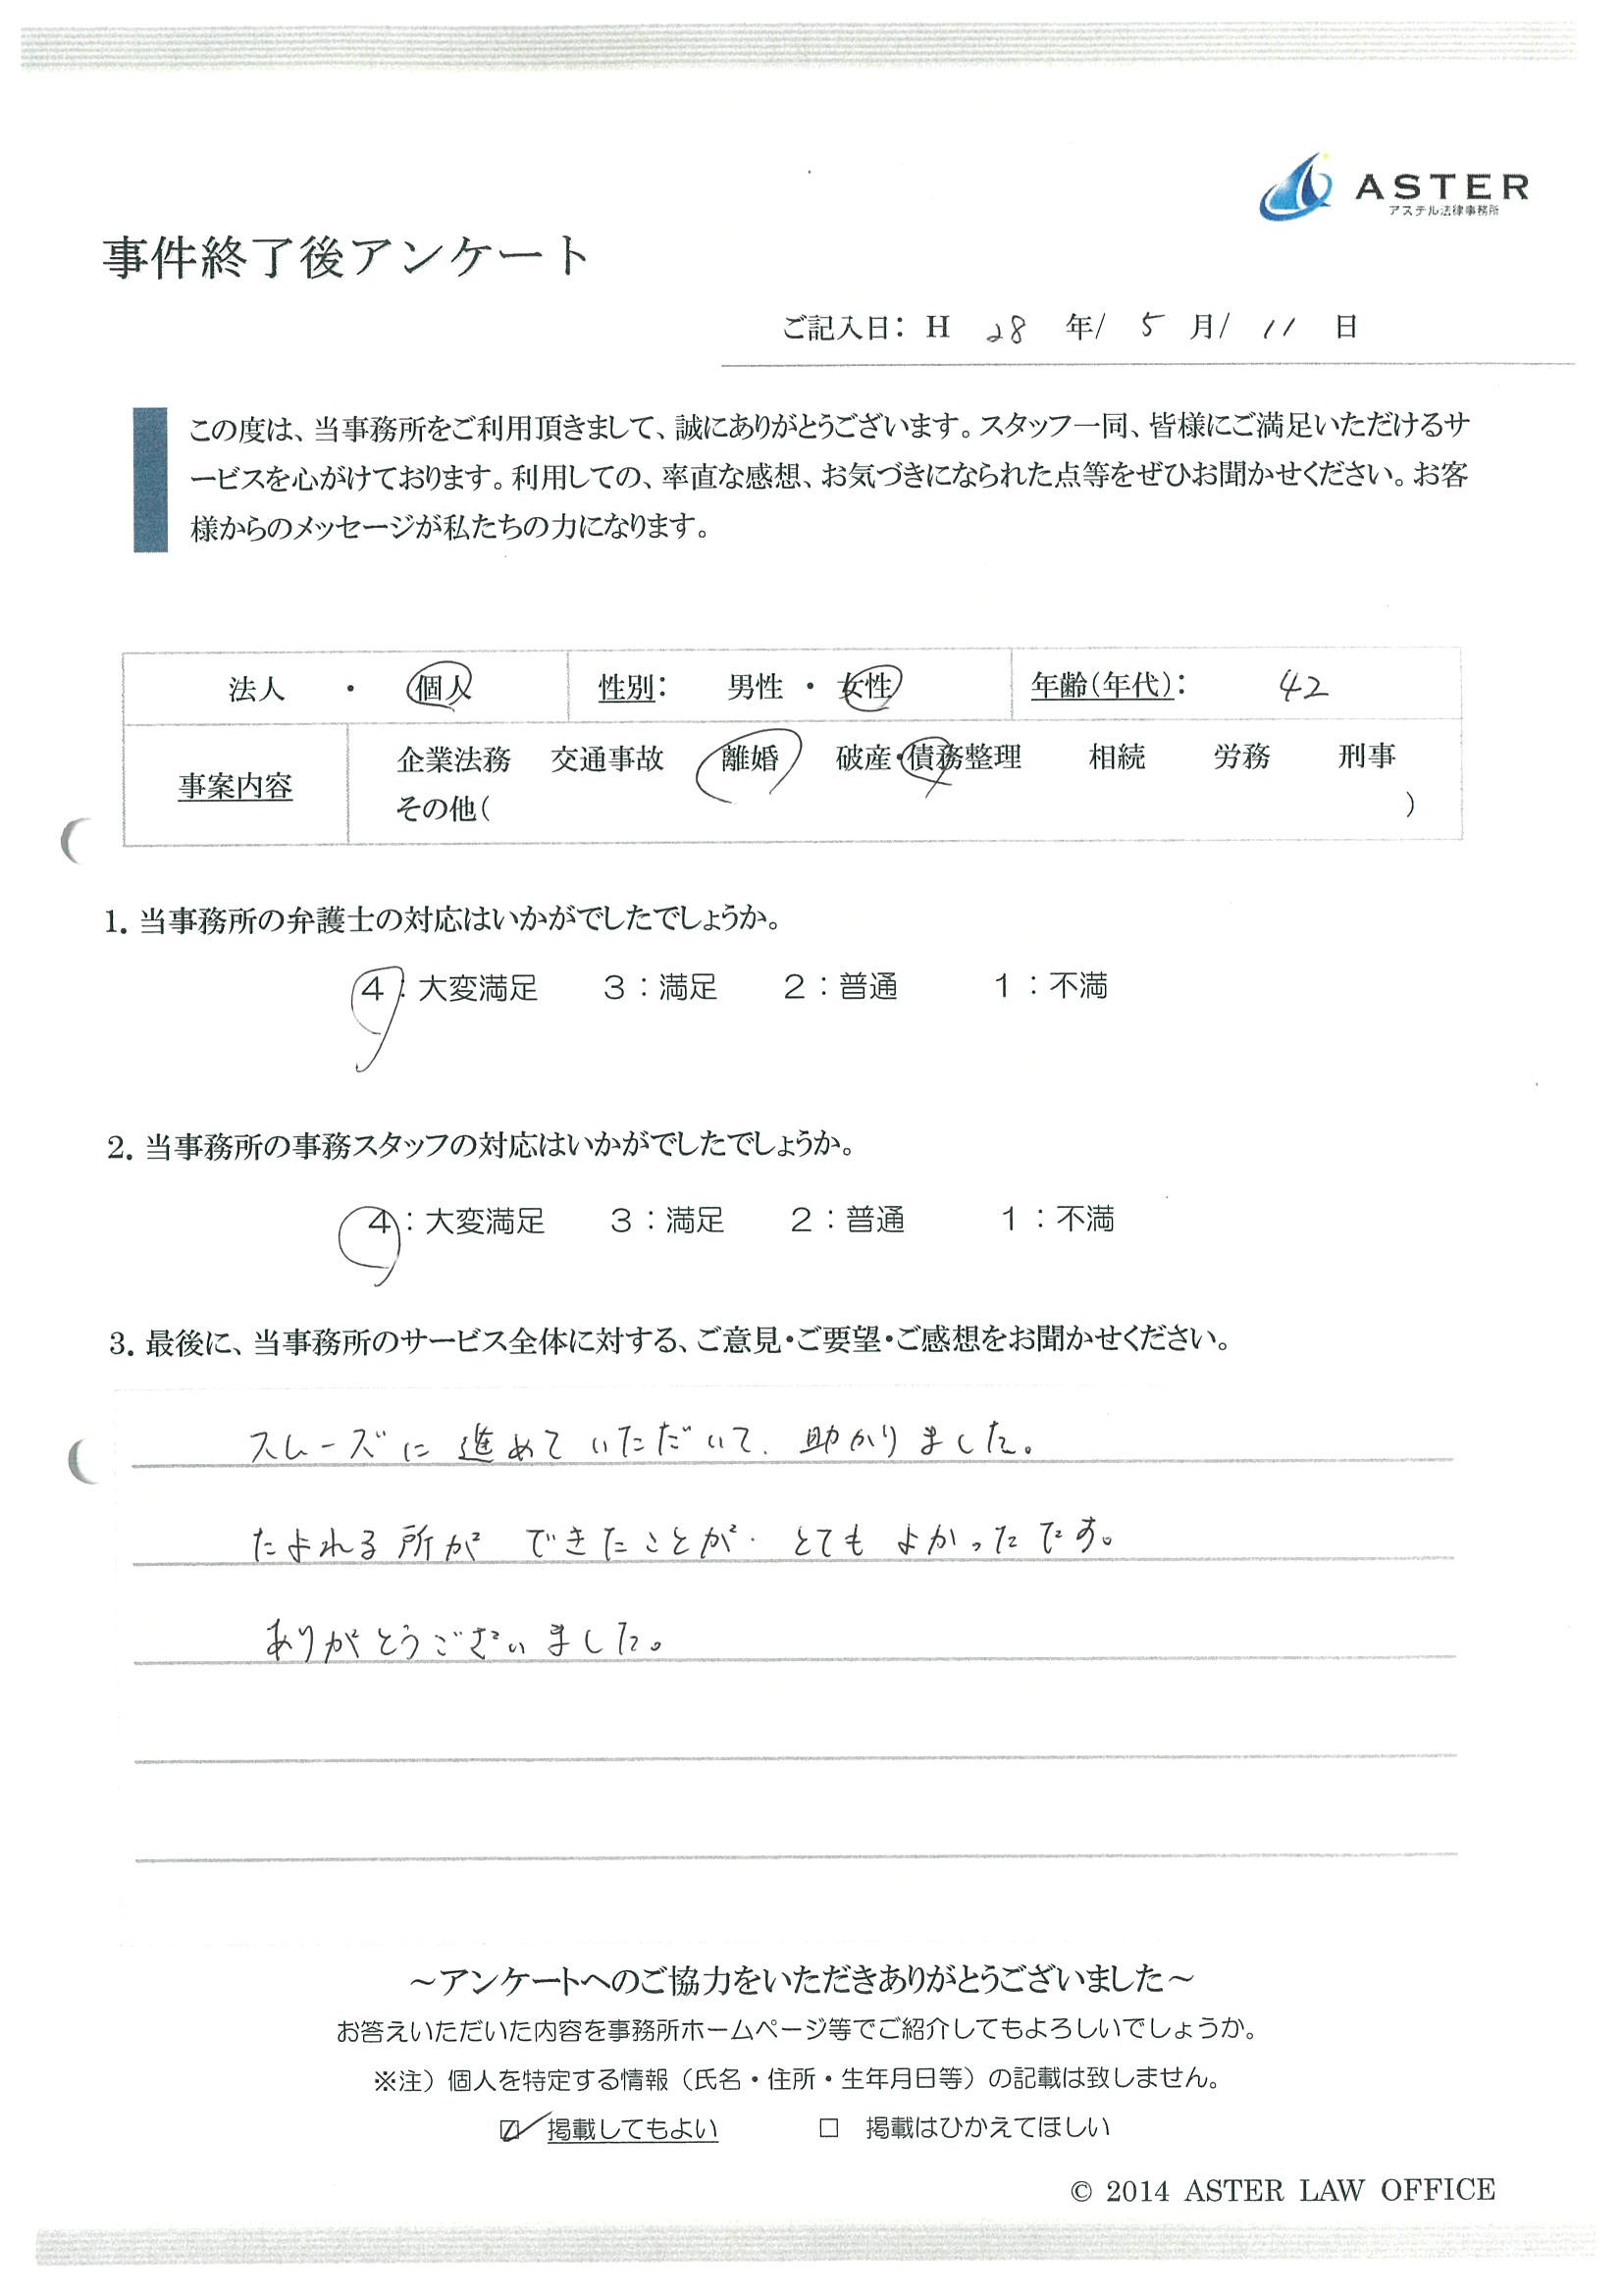 ASTER
アステル法律事務所
事件終了後アンケート
ご記入日： H 28 年/ 5 月/ 11 日
この度は、当事務所をご利用頂きまして、誠にありがとうございます。スタッフ一同、皆様にご満足いただけるサ
ービスを心がけております。利用しての、率直な感想、お気づきになられた点等をぜひお聞かせください。お客
様からのメッセージが私たちの力になります。
法人 ・ 個人 性別： 男性 ・ 女性 年齢（年代）： 42
事案内容 企業法務 交通事故 離婚 破産・債務整理 相続 労務 刑事
その他（ ）
1. 当事務所の弁護士の対応はいかがでしたでしょうか。
4：大変満足 3：満足 2：普通 1：不満
2. 当事務所の事務スタッフの対応はいかがでしたでしょうか。
4：大変満足 3：満足 2：普通 1：不満
3. 最後に、当事務所のサービス全体に対する、ご意見・ご要望・ご感想をお聞かせください。
スムーズに進めていただいて、助かりました。
たよれる所ができたことが、とてもよかったです。
ありがとうございました。
～アンケートへのご協力をいただきありがとうございました～
お答えいただいた内容を事務所ホームページ等でご紹介してもよろしいでしょうか。
※注）個人を特定する情報（氏名・住所・生年月日等）の記載は致しません。
☑ 掲載してもよい □ 掲載はひかえてほしい
© 2014 ASTER LAW OFFICE